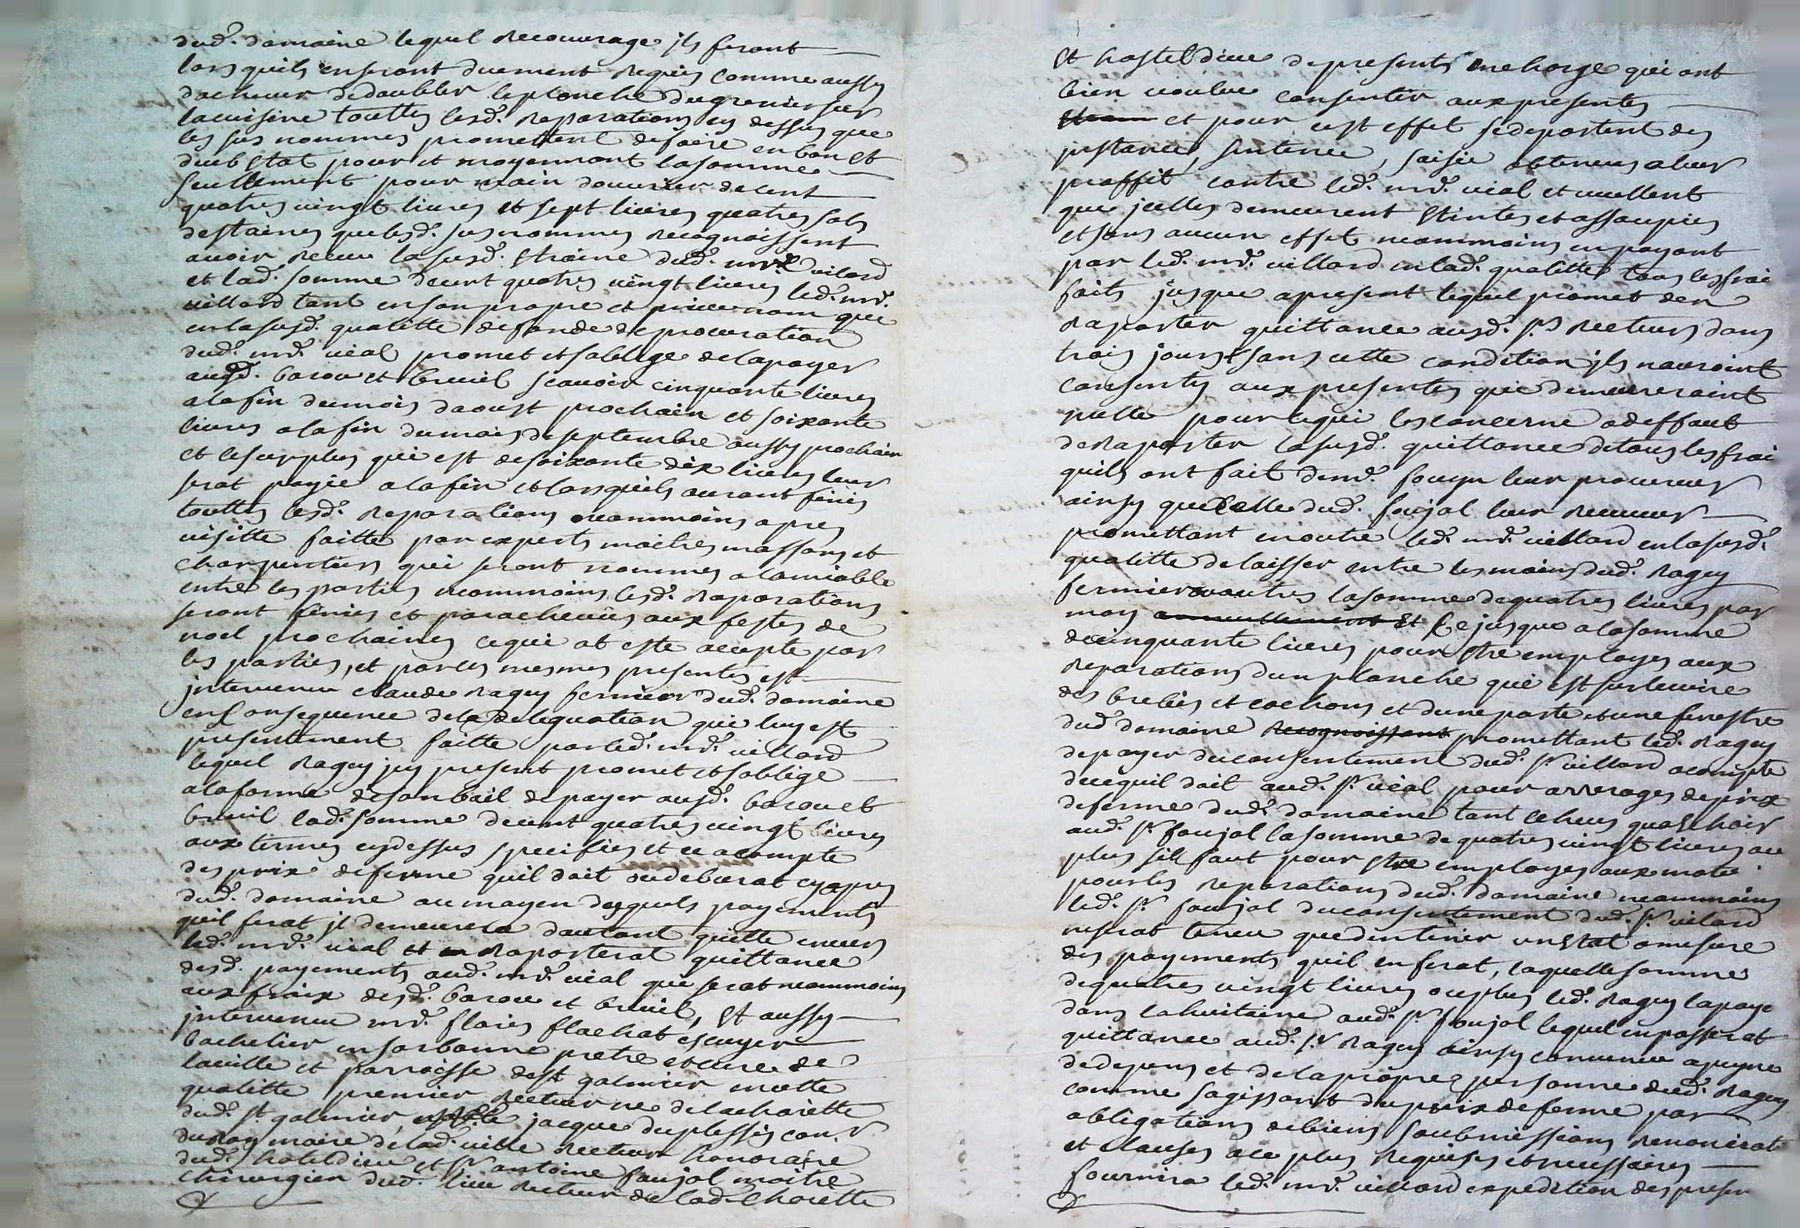 dud. domaine lequel recouvrage jls feront
lors quils en seront duement requis comme aussy
d'achever de doubler le planché du grenier sur
la cuisine touttes lesd. reparations cy dessus que
les sus nommes promettent de faire en bon et
deub Estat pour et moyennant la somme
seullement pour main douvrier de cent
quatres vingt livres et sept livres quatres sols
destaines que lesd. sus nommes recognoissent
avoir receu la susd. Straine dud. mr. vilard
et lad. somme de cent quatres vingt livres led. mr.
villard tant en son propre et privé nom que
en la susd. qualitté de fondé de procuration
dud. mr. vial promet et soblige de la payer
ausd. barou et breuil scavoir cinquante livres
a la fin du mois daoust prochain et soixante
livres a la fin du mois de septembre aussy prochain
et le surplus qui est de soixante dix livres leur
serat payé a la fin et lorsquils auront finis
touttes lesd. reparations neammoins apres
visitte faitte par experts maitres massons et
charpentiers qui seront nommes a lamiable
entre les parties neammoins lesd. Raparations
seront finies et parachevées aux festes de
noel prochaines ce qui at esté accepté par
les parties, et par ces mesmes presentes est
jntervenu claude Raguy fermier dud. domaine
en Consequence de la delequation qui luy est
presentement faitte par led. mr. villard
lequel Raguy jcy present promet et soblige
a la forme de son bail de payer ausd. barou et
breuil lad. somme de cent quatres vingt livres
aux termes cy dessus specifies et ce acompte
des prix de ferme quil doit ou debvrat cy apres
dud. domaine au moyen desquels payements
quil ferat jl demeurera dautant quitte envers
led. mr. vial et raporterat quittance
desd. payements aud. mr. vial qui serat neammoins
aux fraix desd. barou et breuil, Et aussy
jntervenu mr. flachat escuyer
bachelier en sorbonne pretre et curé de
la ville et parroisse de st galmier en cette
qualitté premier recteur né de la charitté
dud. st galmier jacque duplessis con.r
du Roy maire de lad. ville Recteur honoraire
dud. hoteldieu et sr. antoine foujol maitre
chirurgien dud. lieu recteur de lad. Charitté
Et hosteldieu de presents en charge qui ont
bien voulu consentir aux presentes
et pour cest effet se departent des
jnstances, sentence, saisie obtenues a leur
proffit contre led. mr. vial et veullent
que jcelles demeurent Etintes et assoupies
et sans aucun effet neammoins en payant
par led. mr. villard en lad. qualitté tous les frai
faits jusque a present lequel promet den
raporter quittance ausd. srs Recteurs dans
trois jours sans cette condition jls nauroint
consentis aux presentes que demeureroint
nulle pour ce qui les concerne a deffaut
de raporter la susd. quittance de tous les frai
quils ont fait de mr. leur procureur
ainsy que Celle dud. foujol leur receveur
promettant en outre led. mr. villard en la susd.
qualitté de laisser entre les mains dud. Raguy
fermier la somme de quatres livres par
mois annuellement Et Ce jusque a la somme
de cinquante livres pour Etre employés aux
reparations dun planché qui est sur lecuire
des brebis et cochons et dune porte et une fenestre
dud. domaine recognoissant promettant led. Raguy
de payer du consentement dud. sr. villard acompte
de ce quil doit aud. sr. vial pour arrerages de prix
de ferme dud. domaine tant Echeus qua Echoir
aud. sr. foujol la somme de quatres vingt livres ou
plus sil faut pour Etre employés aux mate.
pour les reparations dud. domaine neammoins
led. sr. foujol du consentement dud. sr. vilard
ne serat tenu que den tenir un Etat a mesure
des payements quil en ferat, laquelle somme
de quatres vingt livres ou plus led. Raguy la paye
dans la huitaine aud. sr. foujol lequel en passerat
quittance aud. sr. Raguy ainsy convenu a peyne
de depens et de la propre personne dud. Raguy
comme sagissant du prix de ferme par
obligations de biens soubmissions renonciat
et clauses au plus requises et necessaires
fournira led. mr. villard expedition des presen